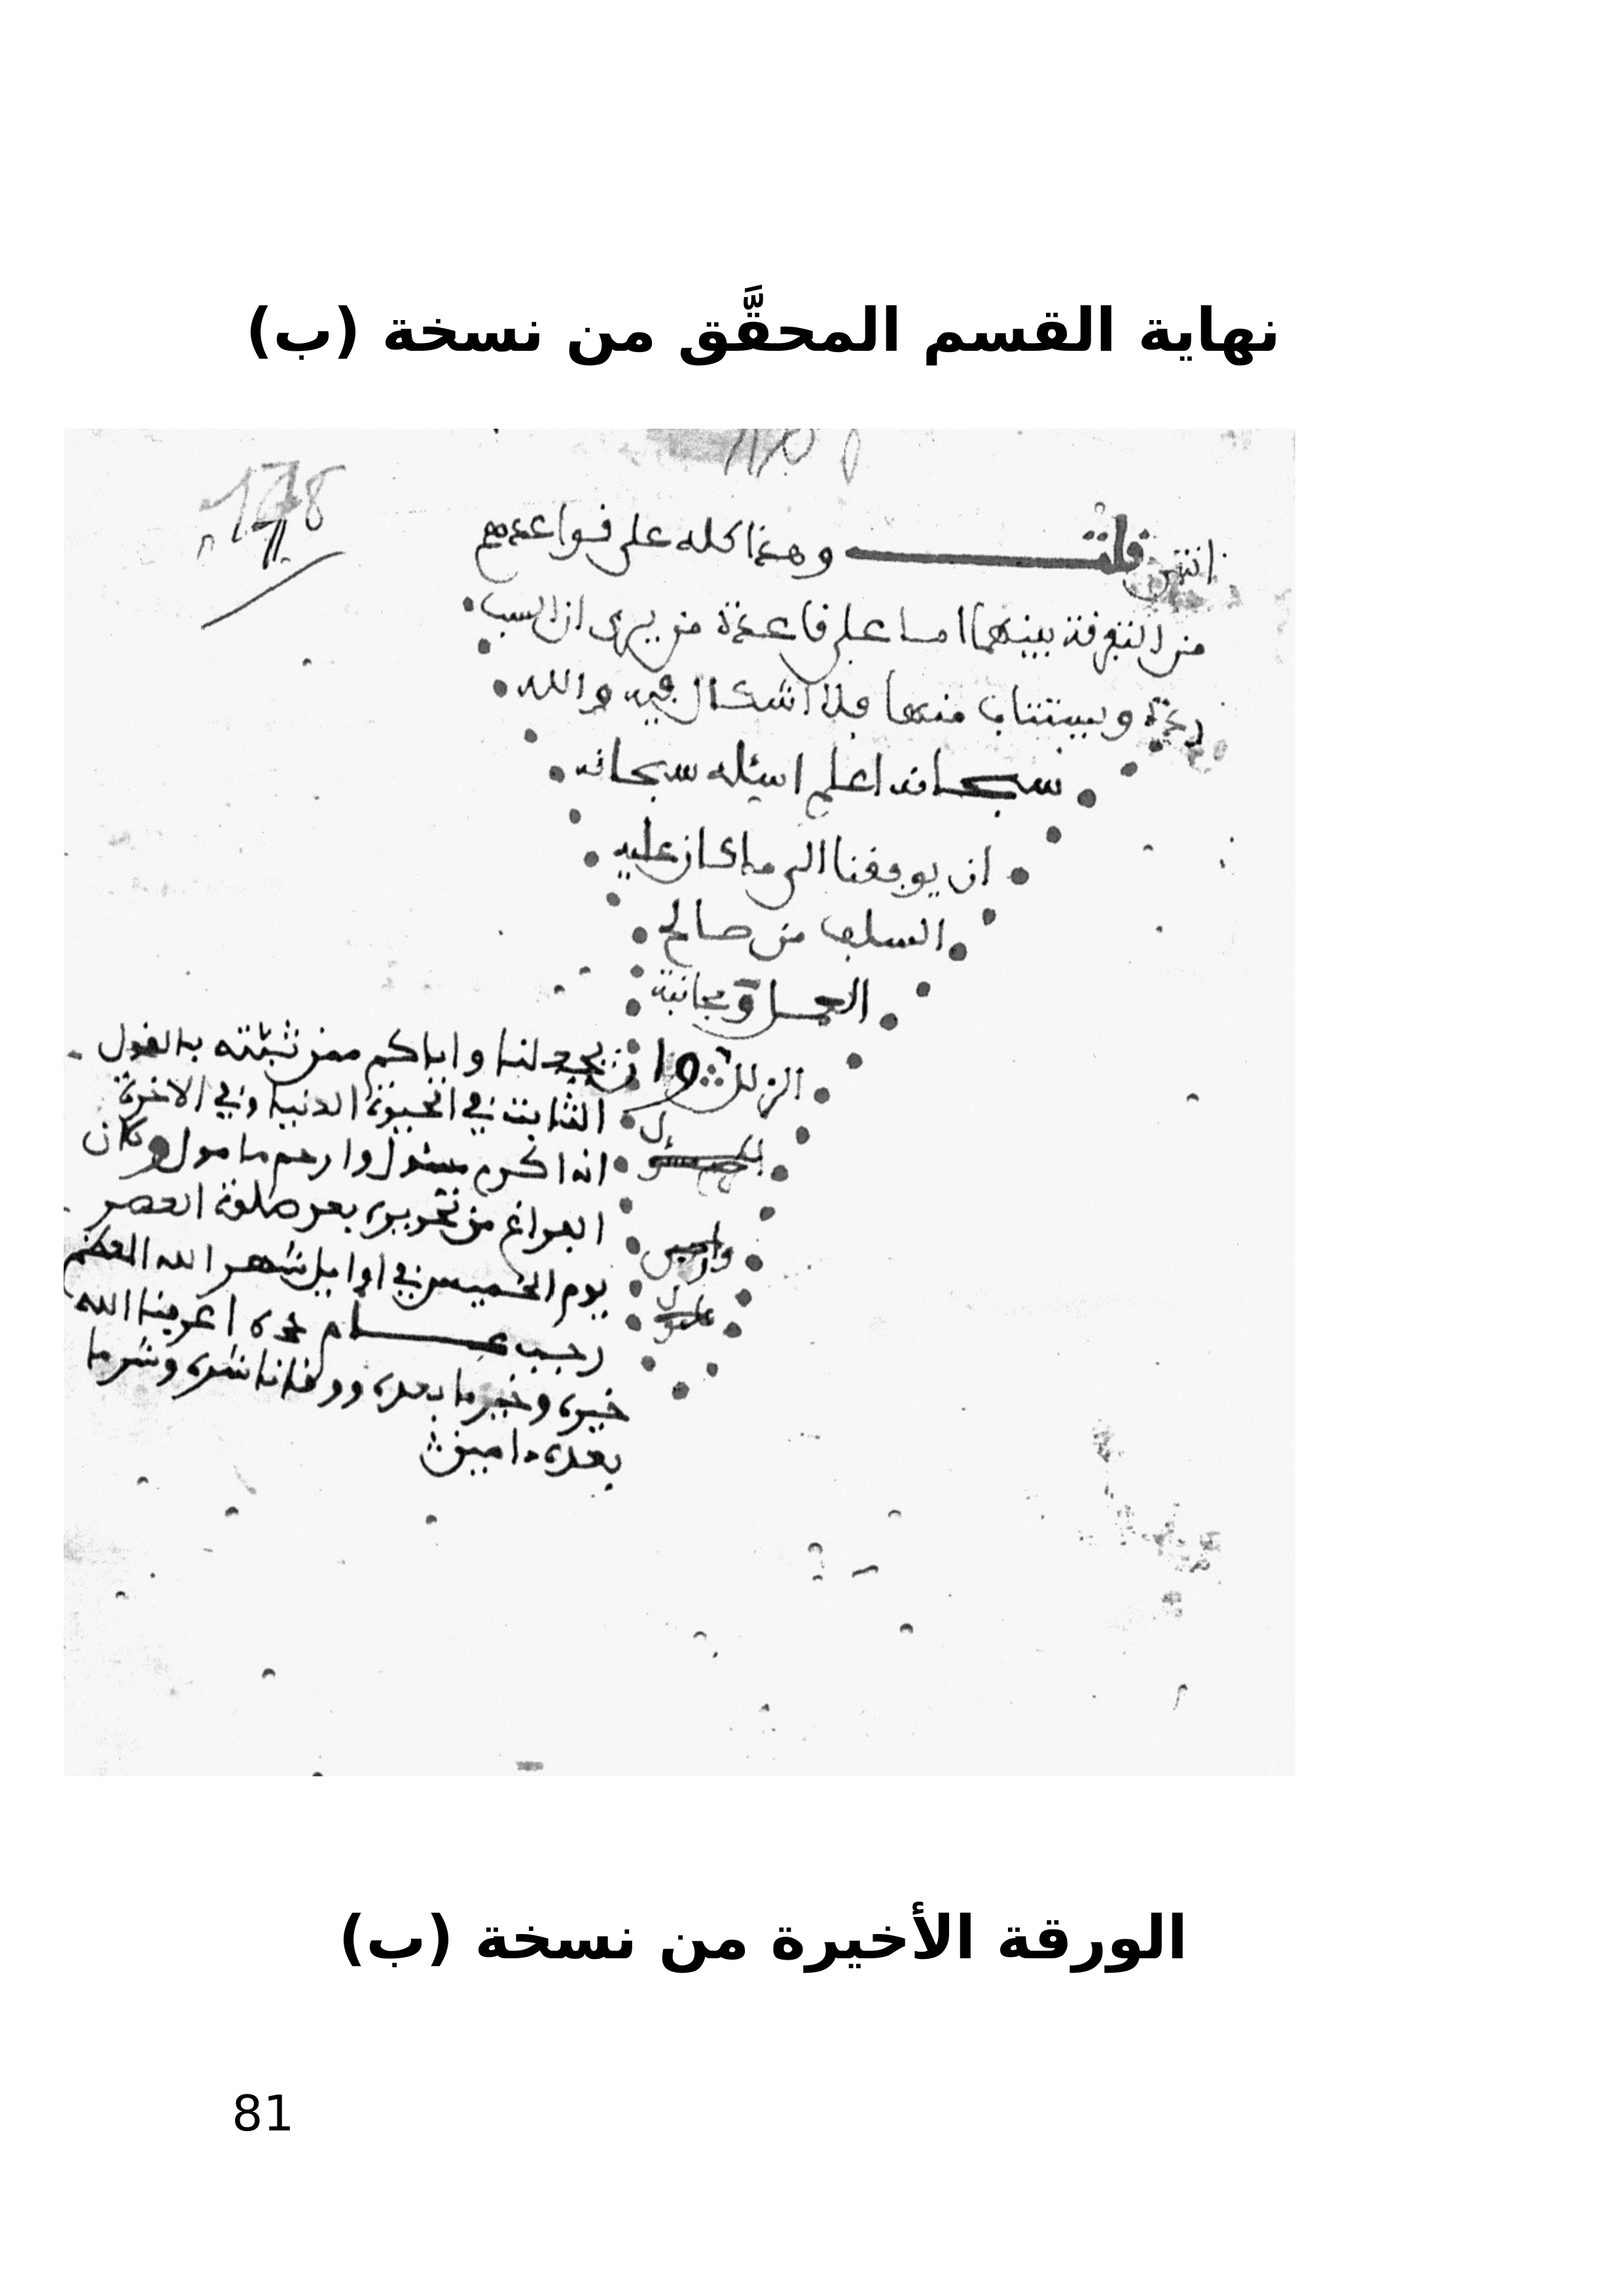 نهاية القسم المحقَّق من نسخة (ب)
178
انتهى قلت وهذا كله على قواعدهم
من التفرقة بينهما اما على قاعدة من يرى ان السب
ردة ويستتاب منها فلا اشكال فيه والله
سبحانه اعلم اسئله سبحانه
ان يوفقنا الى ما كان عليه
السلف من صالح
العمل ومجانبة
الزلل وان يجعلنا واياكم ممن ثبته بالقول
الثابت في الحيوة الدنيا وفي الاخرة
انه اكرم مسئول وارحم مامول وكان
الفراغ من تحريره بعد صلوة العصر
يوم الخميس في اوايل شهر الله المعظم
رجب عــــام اعرفنا الله
خيره وخير ما بعده ووقانا شره وشر ما
بعده ءامين
الورقة الأخيرة من نسخة (ب)
81